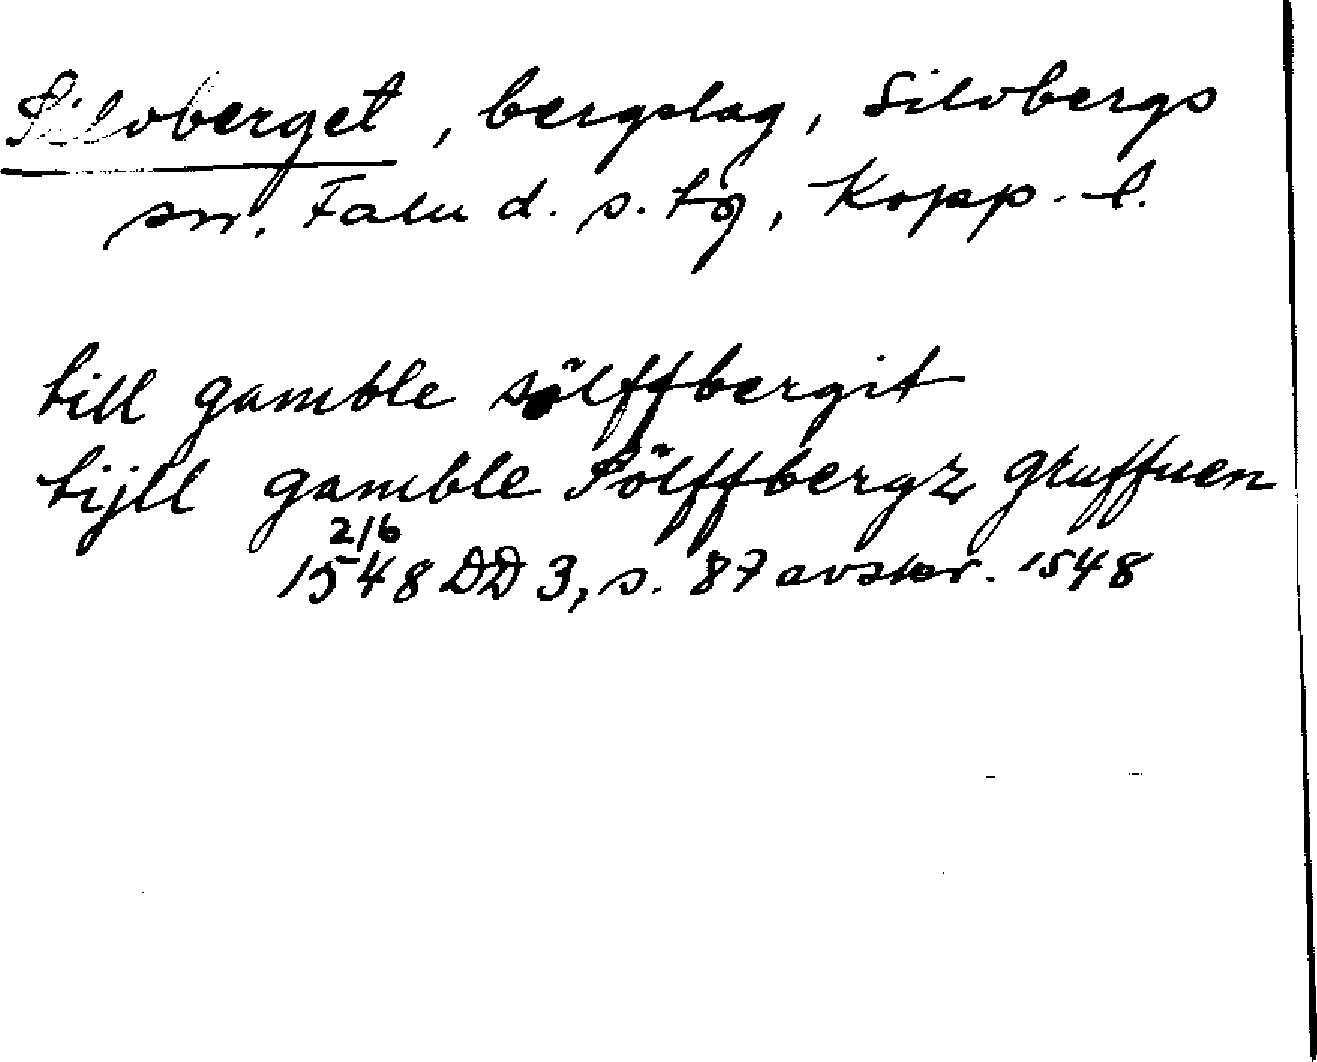 Silvberget, bergslag, Silvbergs
sn. Falu d. s. tg, Kopp. l.
till gamble sölffbergit
tijll gamble Sölffbergz gruffuen
2/6
1548 DD 3, s. 87 avskr. 1548